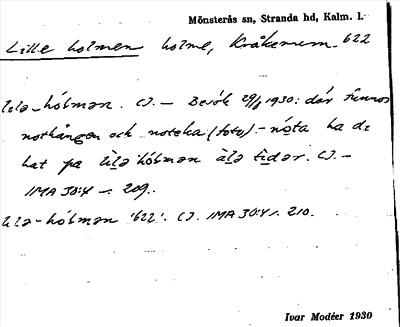 Mönsterås sn, Stranda hd, Kalm. l.
Lille holmen holme, Kråkerum. 622
lilə-hólmən. CJ. – Besök 29/8 1930: där finnes
nothängen och noteka (foto). – nóta ha də
hat pa lìlə hólmən àlə tìdər. CJ. –
IMA 30:4 s. 209.
lilə-hólmən '622'. CJ. IMA 30:4 s. 210.
Ivar Modéer 1930